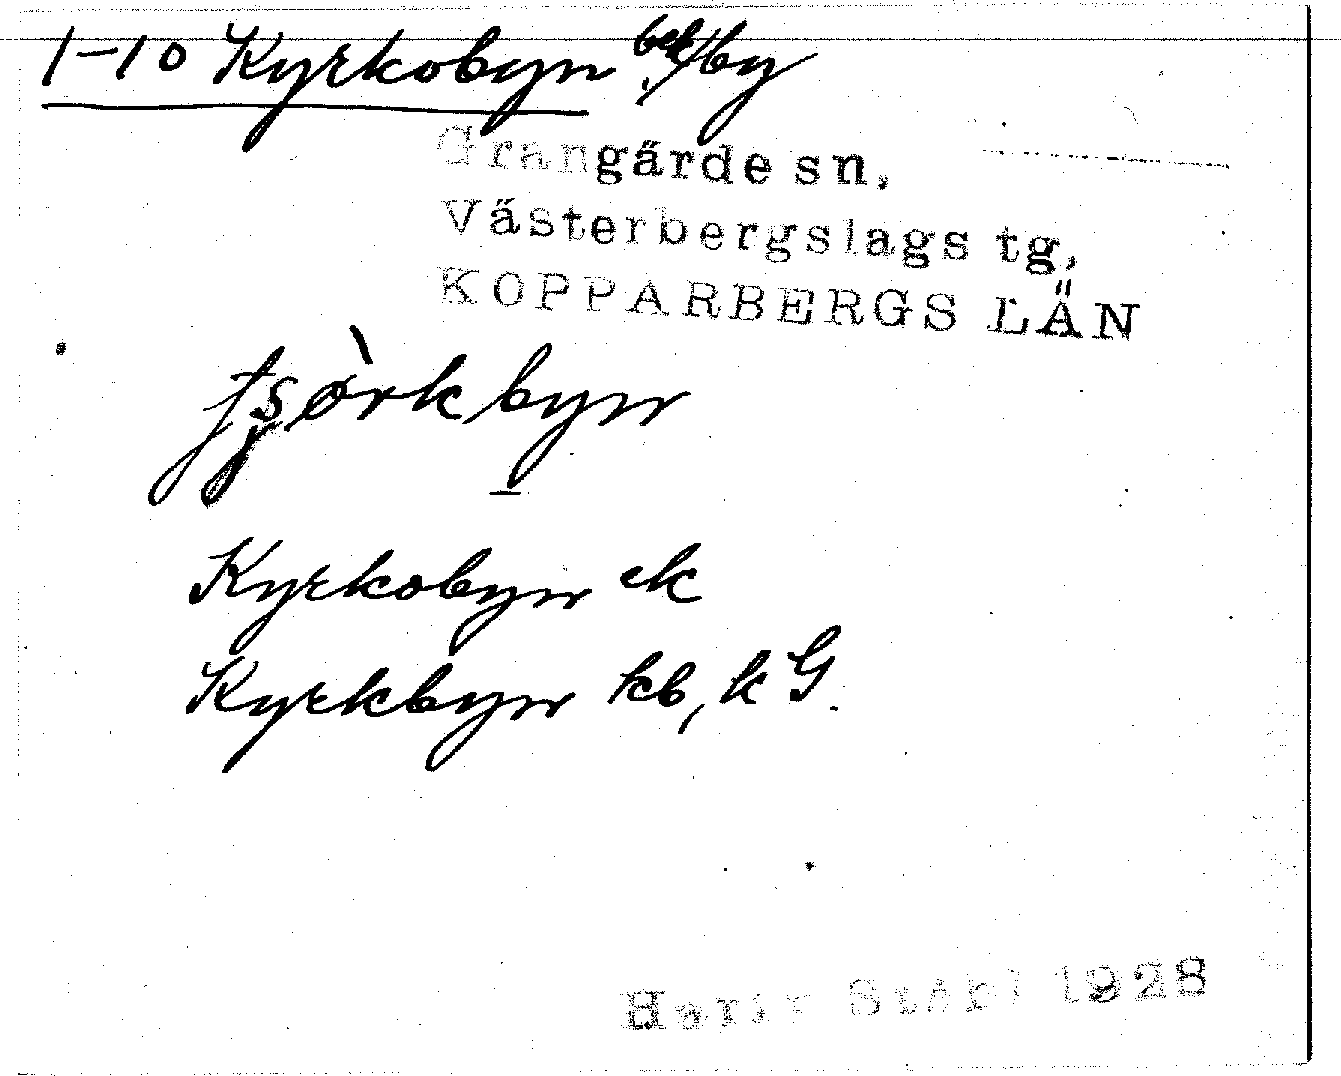 1-10 Kyrkobyn beb/by
Grangärde sn,
Västerbergslags tg,
KOPPARBERGS LÄN
Kyrkobyn ek
Kyrkbyn kb, k G.
Harry Ståhl 1928